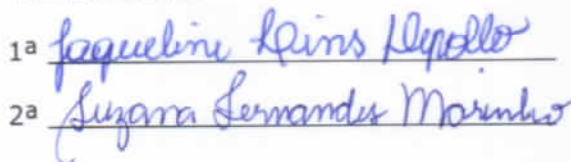 1ª Jaqueline Lins Depollo
2ª Suzana Fernandes Marinho